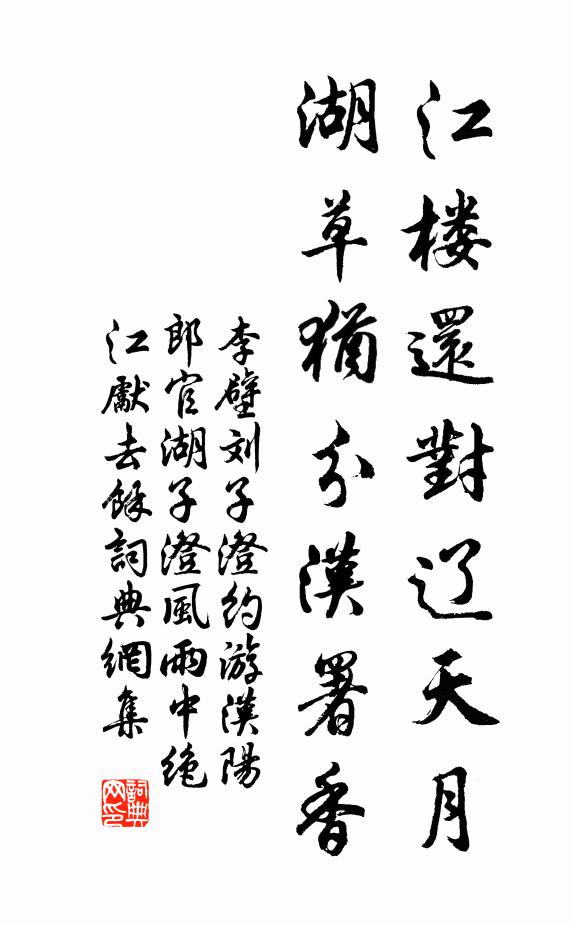 江楼還對辽天月
湖草猶分漢署香
李壁刘子澄約游漢陽
郎官湖子澄風雨中绝
江獻去餘詞典網集
詞典
网印